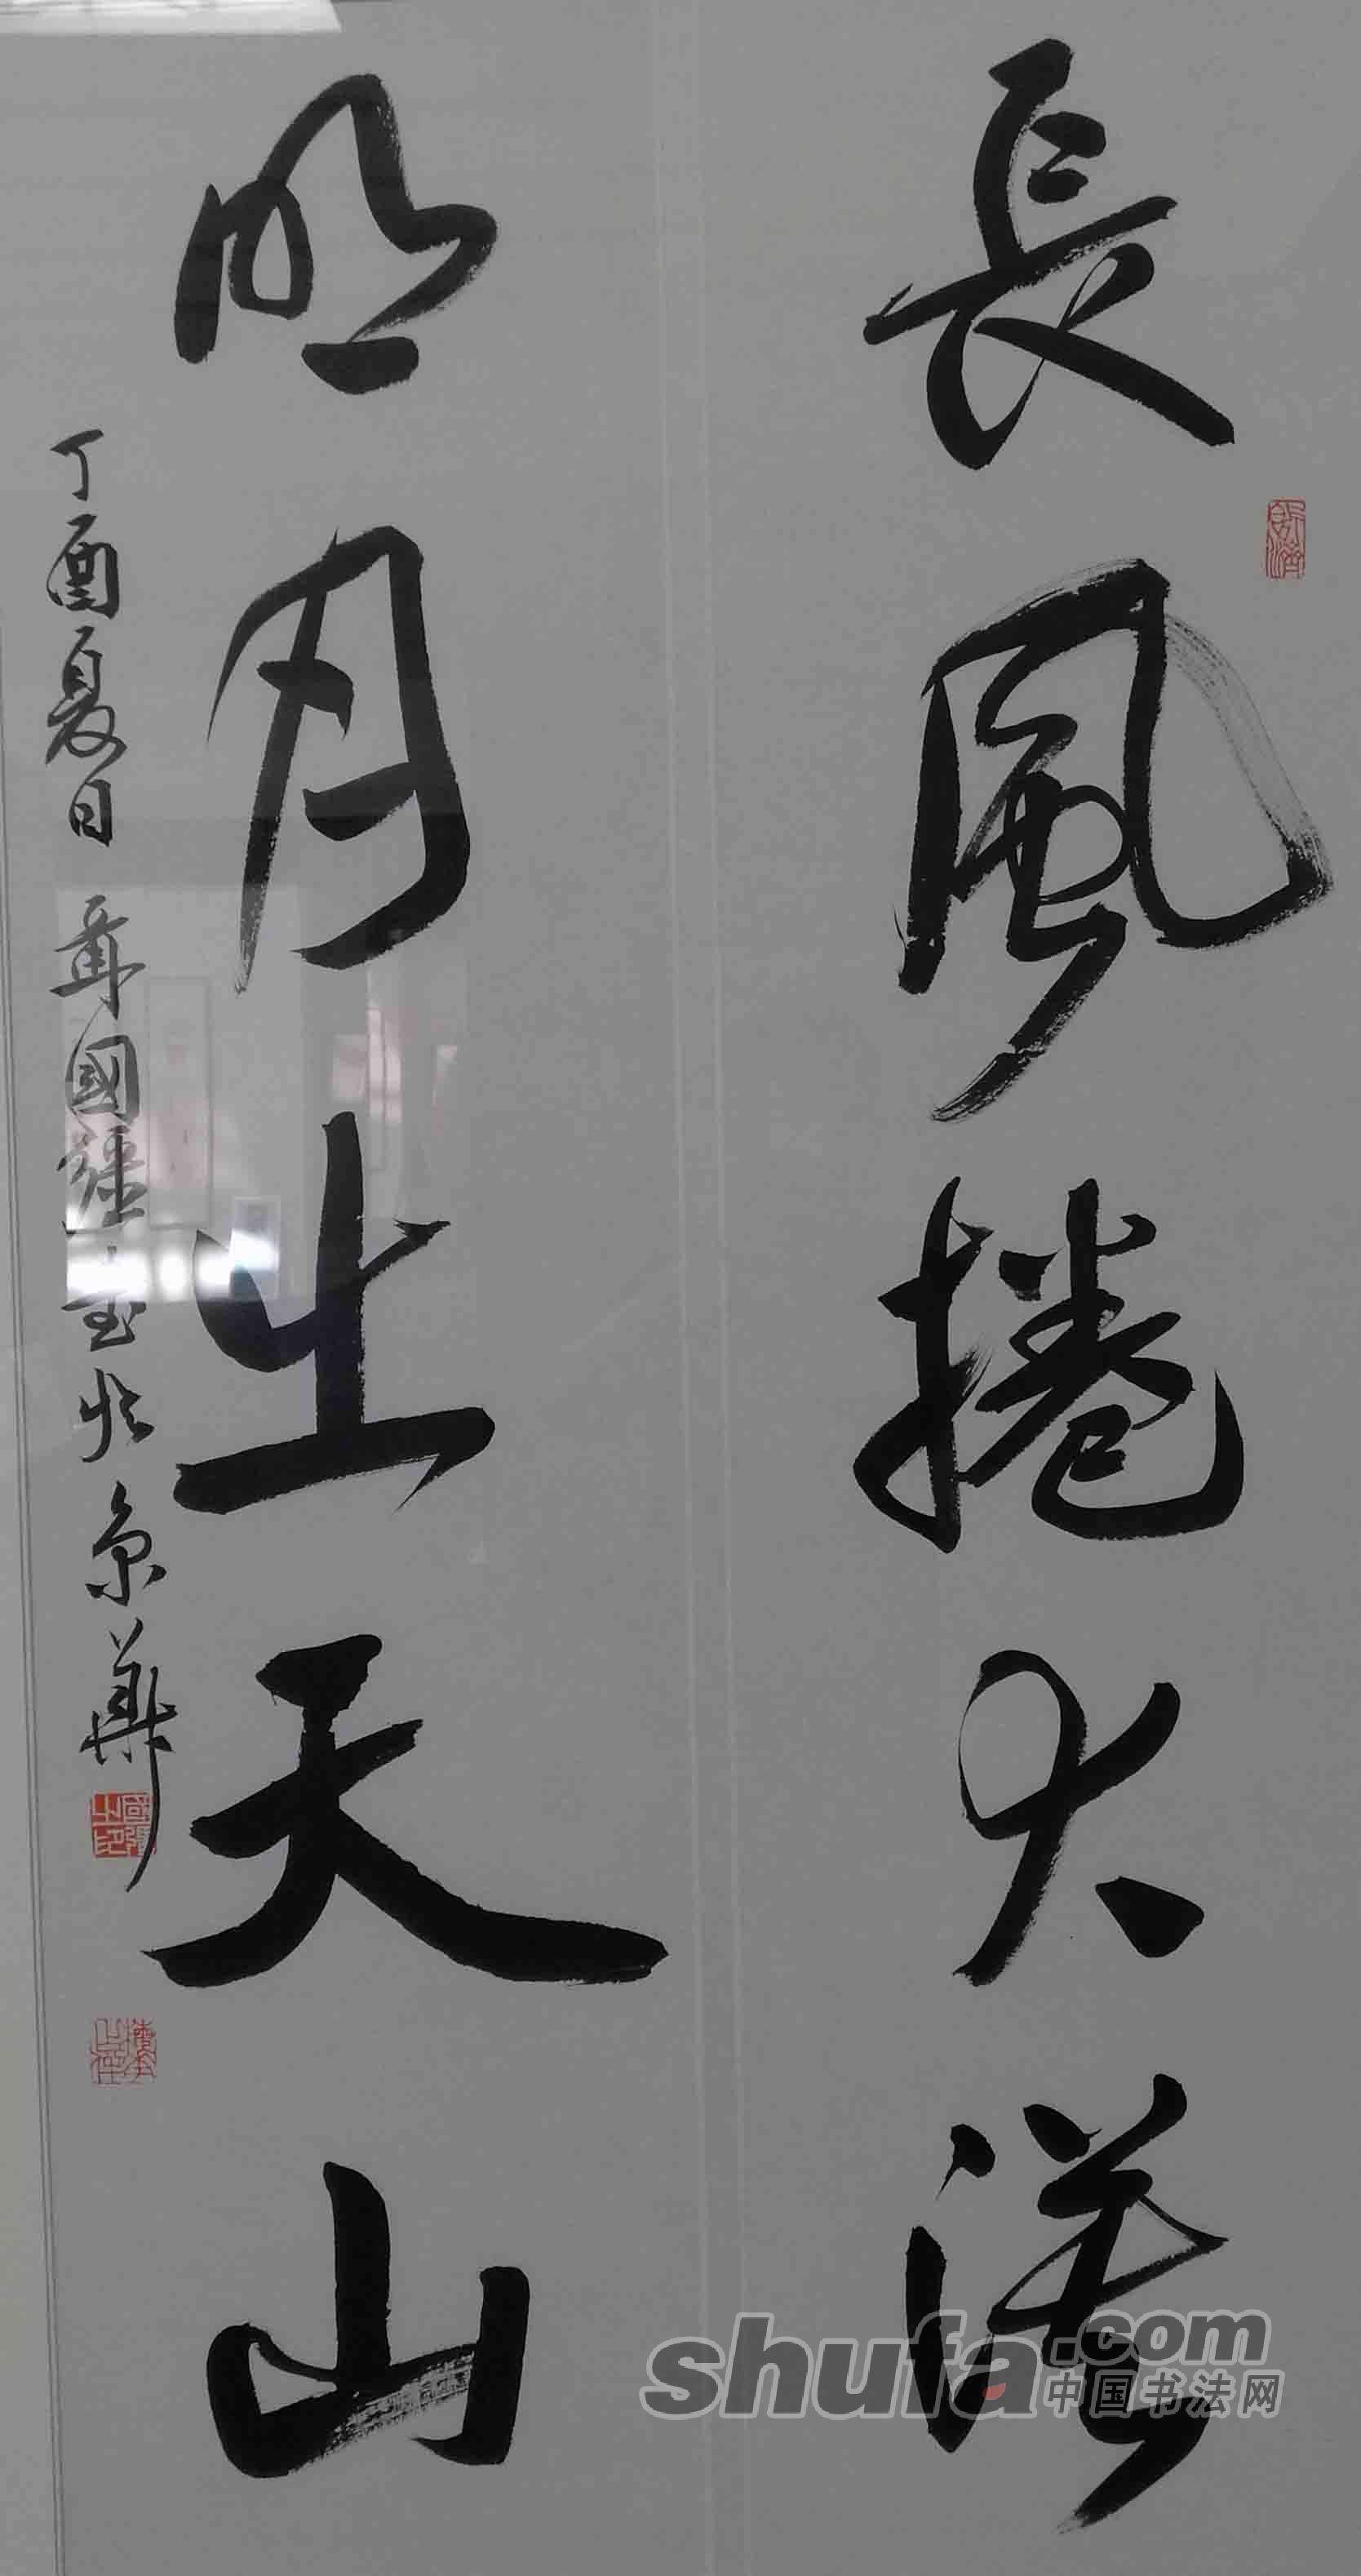 長風捲大漠
明月出天山
丁酉夏日 國彊書於京華
shufa.com
中国书法网